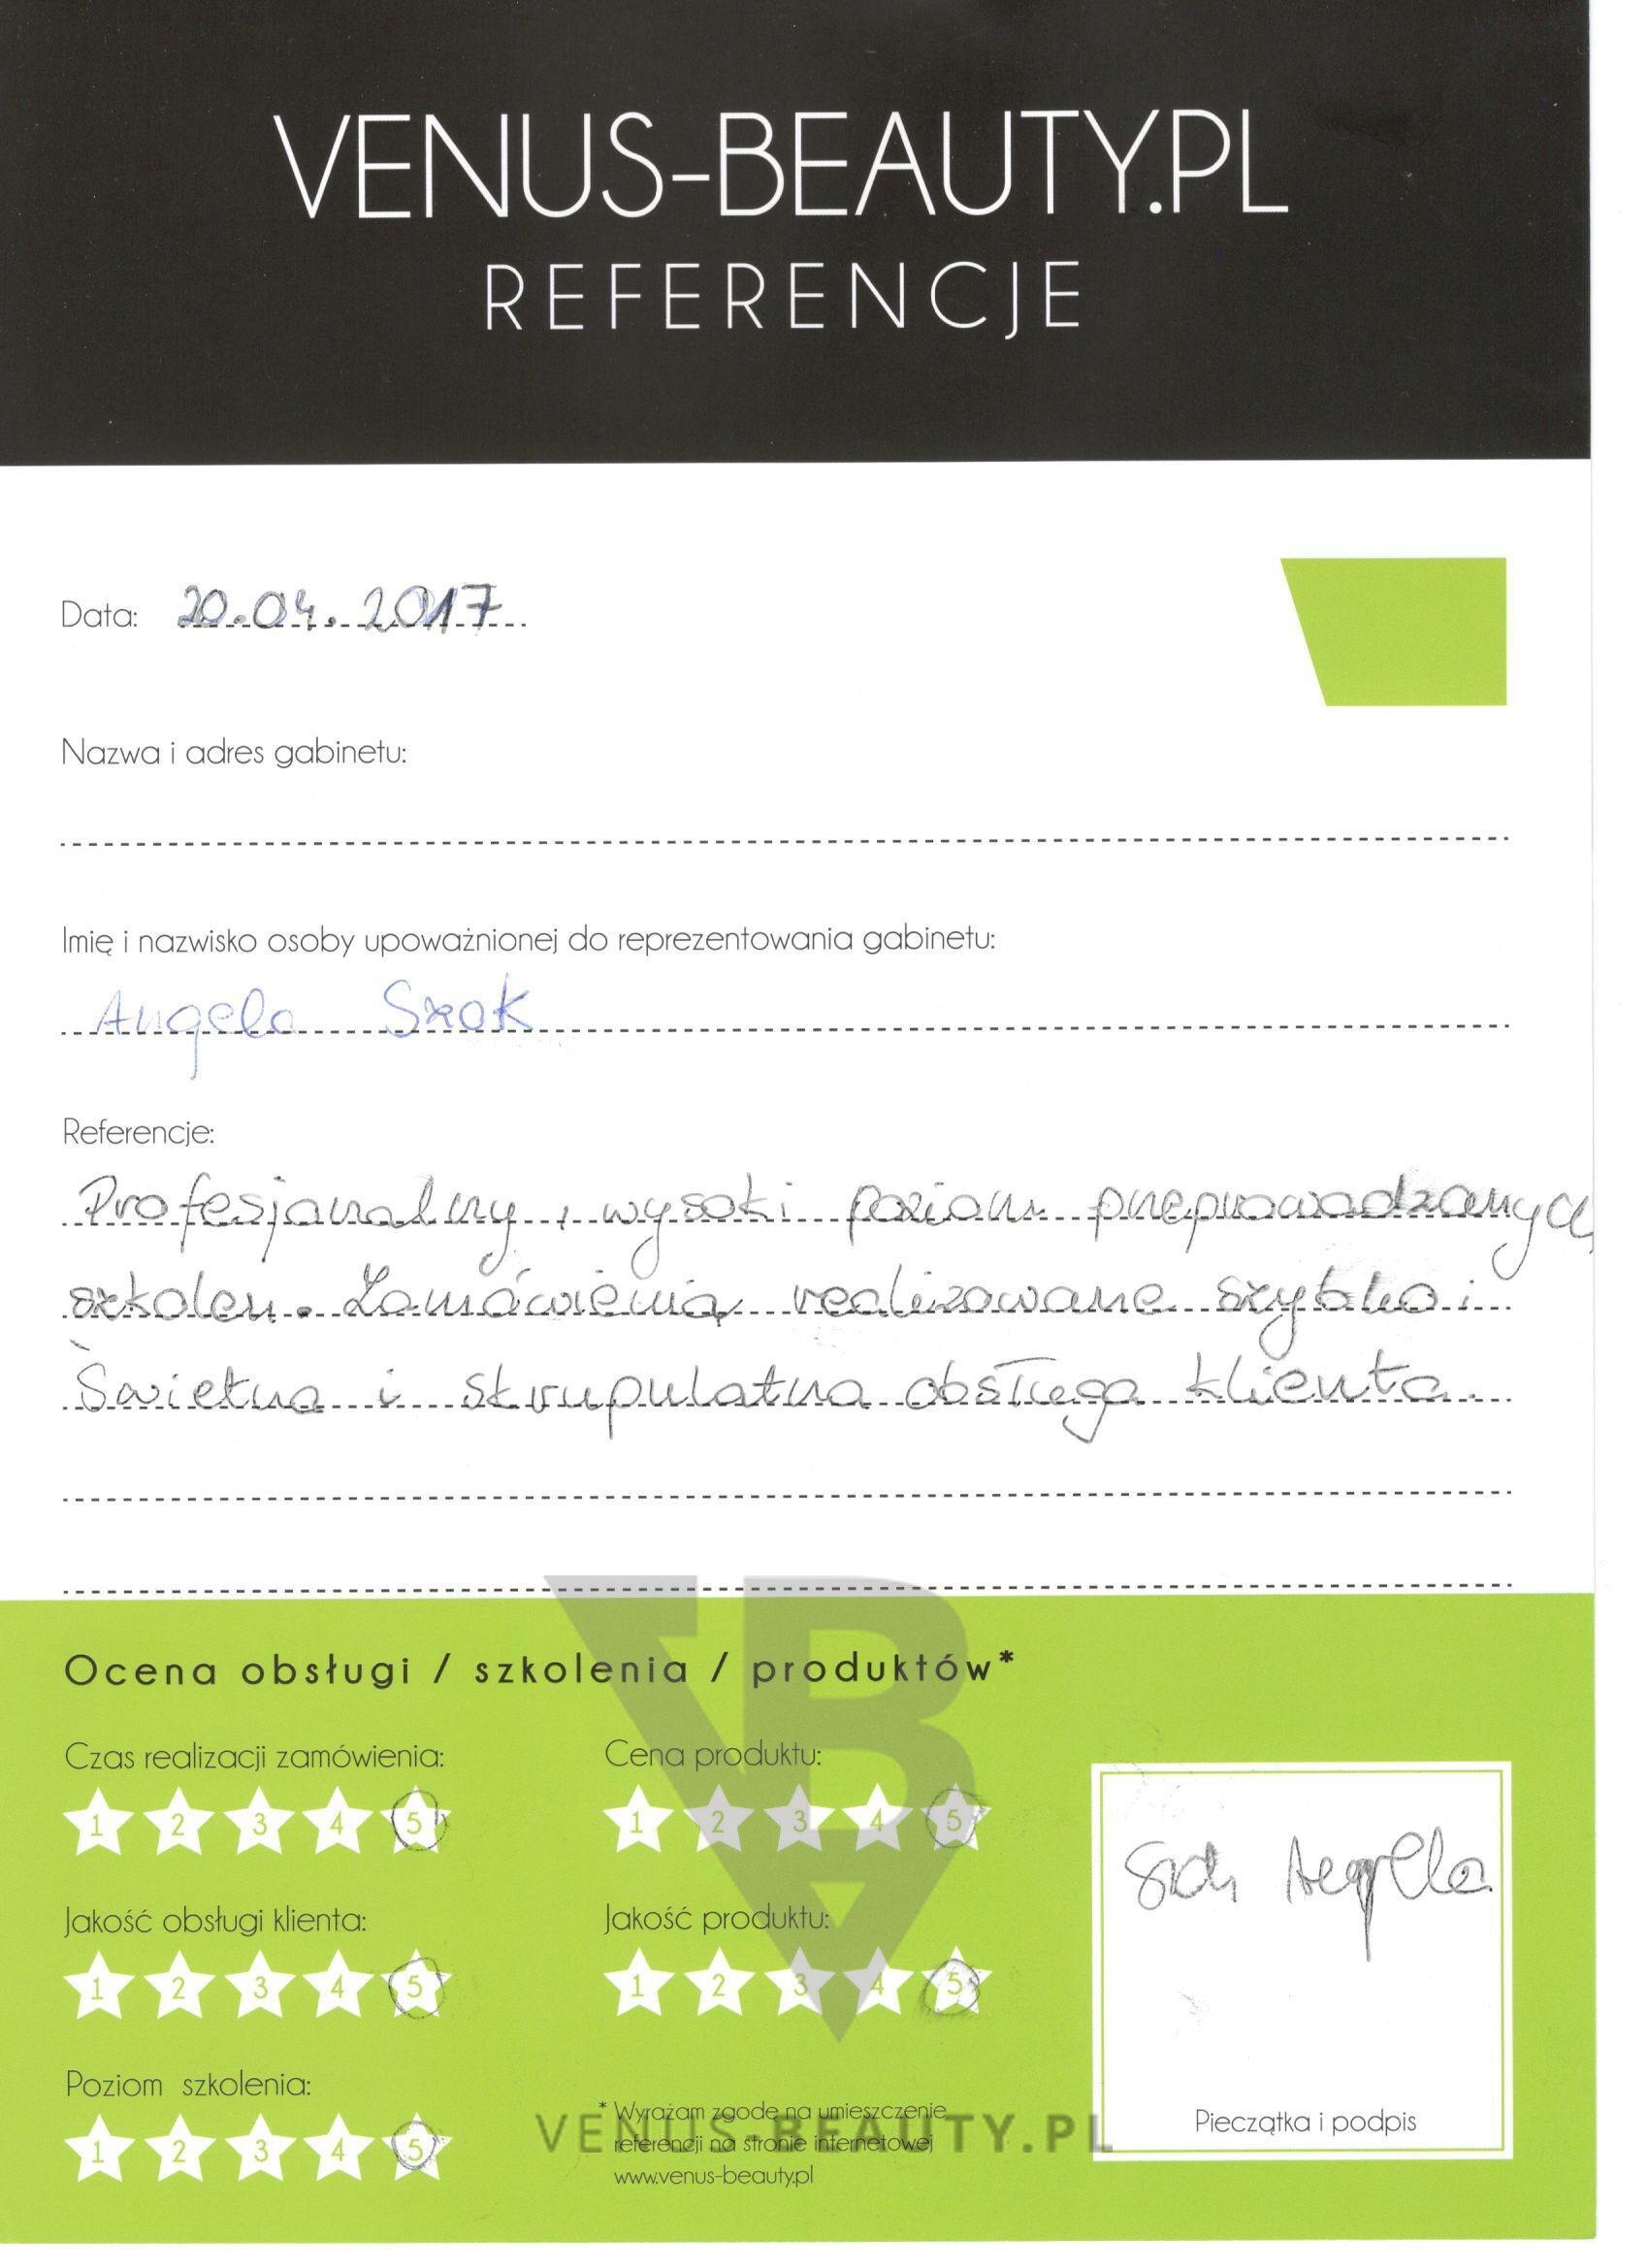 VENUS-BEAUTY.PL
REFERENCJE
Data: 20.04.2017
Nazwa i adres gabinetu:
Imię i nazwisko osoby upoważnionej do reprezentowania gabinetu:
Angela Szok
Referencje:
Profesjonalny, wysoki poziom przeprowadzanych
szkoleń. Zamówienia realizowane szybko i
Świetna i skrupulatna obsługa klienta.
Ocena obsługi / szkolenia / produktów*
Czas realizacji zamówienia:
1 2 3 4 5
Cena produktu:
1 2 3 4 5
Jakość obsługi klienta:
1 2 3 4 5
Jakość produktu:
1 2 3 4 5
Poziom szkolenia:
1 2 3 4 5
* Wyrażam zgodę na umieszczenie
referencji na stronie internetowej
www.venus-beauty.pl
Angela
Pieczątka i podpis
VENUS-BEAUTY.PL